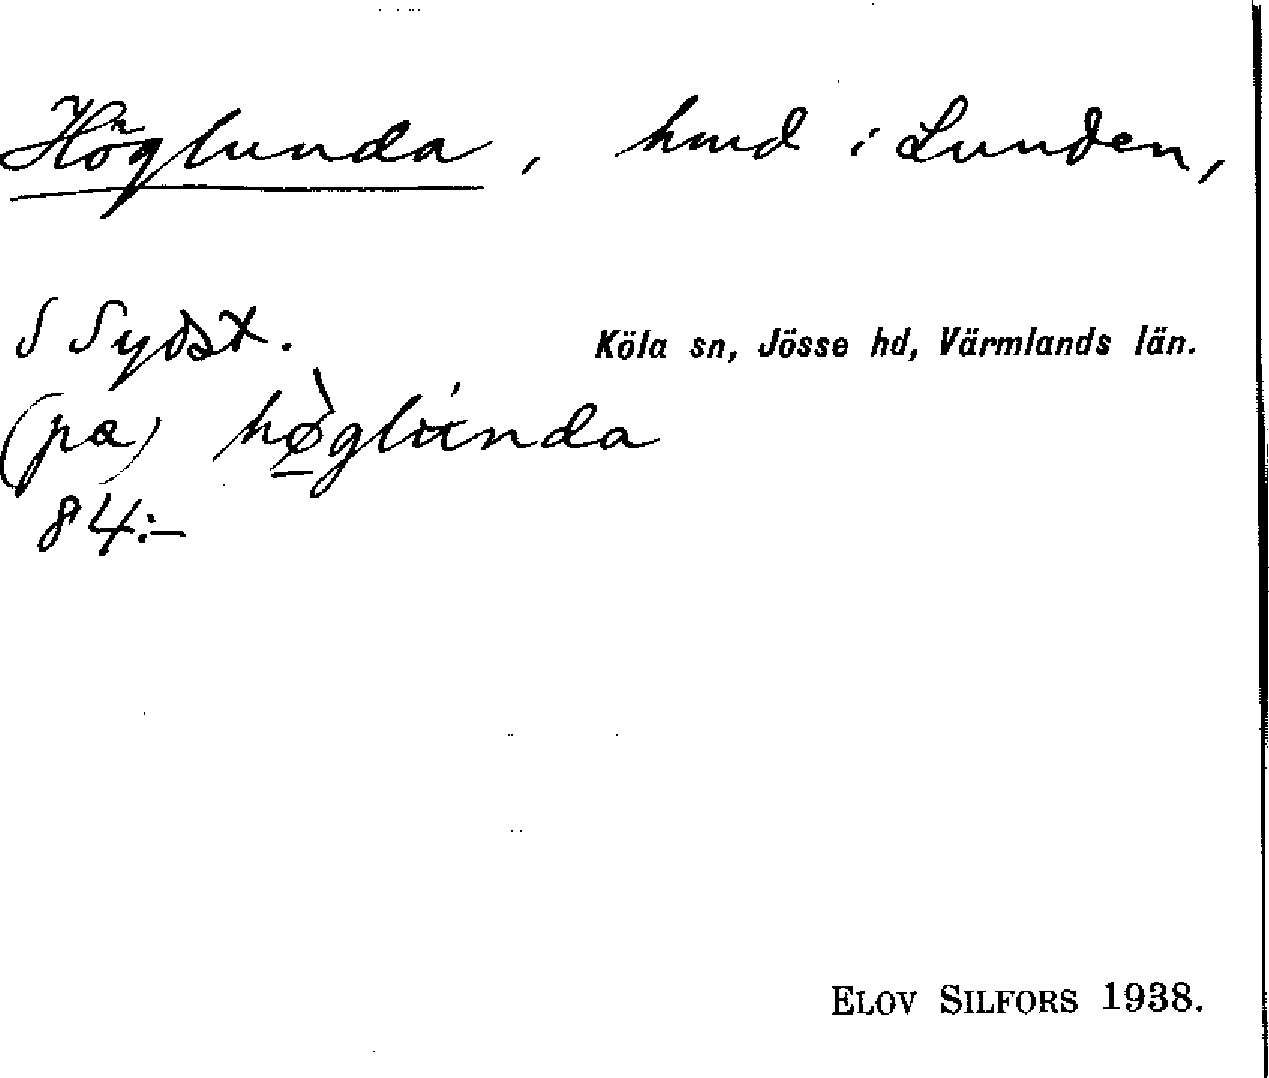 Höglunda, hmd i Lunden,
S Sydst.
Köla sn, Jösse hd, Värmlands län.
(pa) hø̀glúnda
84:-
ELOV SILFORS 1938.